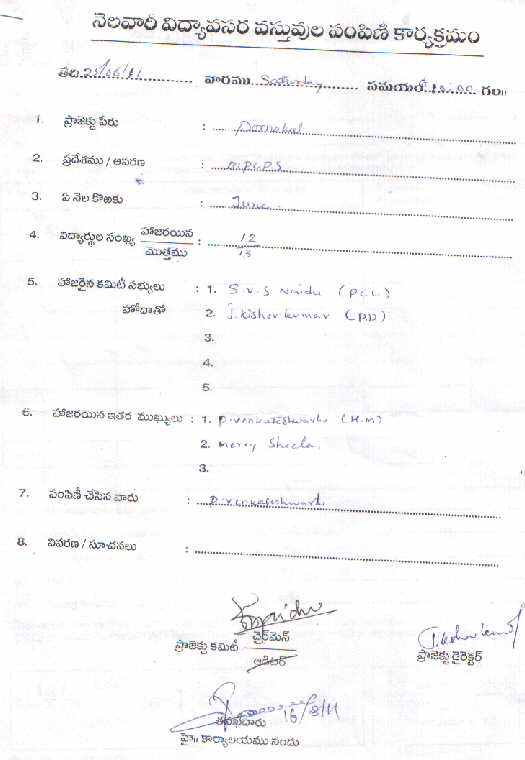 నెలవారీ విద్యావసర వస్తువుల పంపిణీ కార్యక్రమం
తేది 25/06/11 వారము Saturday సమయం 10:00 గం॥
1. ప్రాజెక్టు పేరు : Dornakal
2. ప్రదేశము / ఆవరణ : M.P.U.P.S
3. ఏ నెల కొఱకు : June
4. విద్యార్థుల సంఖ్య హాజరయిన : 12
మొత్తము 13
5. హాజరైన కమిటీ సభ్యులు : 1. S.V.S Naidu (P.C.C.)
హోదాతో 2. J. Kishor kumar (P.D)
3.
4.
5.
6. హాజరయిన ఇతర ముఖ్యులు : 1. P. Venkateshwarlu (H.M)
2. Mercy Sheela.
3.
7. పంపిణీ చేసిన వారు : P. Venkateshwarlu
8. వివరణ / సూచనలు :
ప్రాజెక్టు కమిటీ చైర్‌మెన్
ఆడిటర్
ప్రాజెక్టు డైరెక్టర్
16/8/11
తనిఖీదారు
హై॥ కార్యాలయము నందు